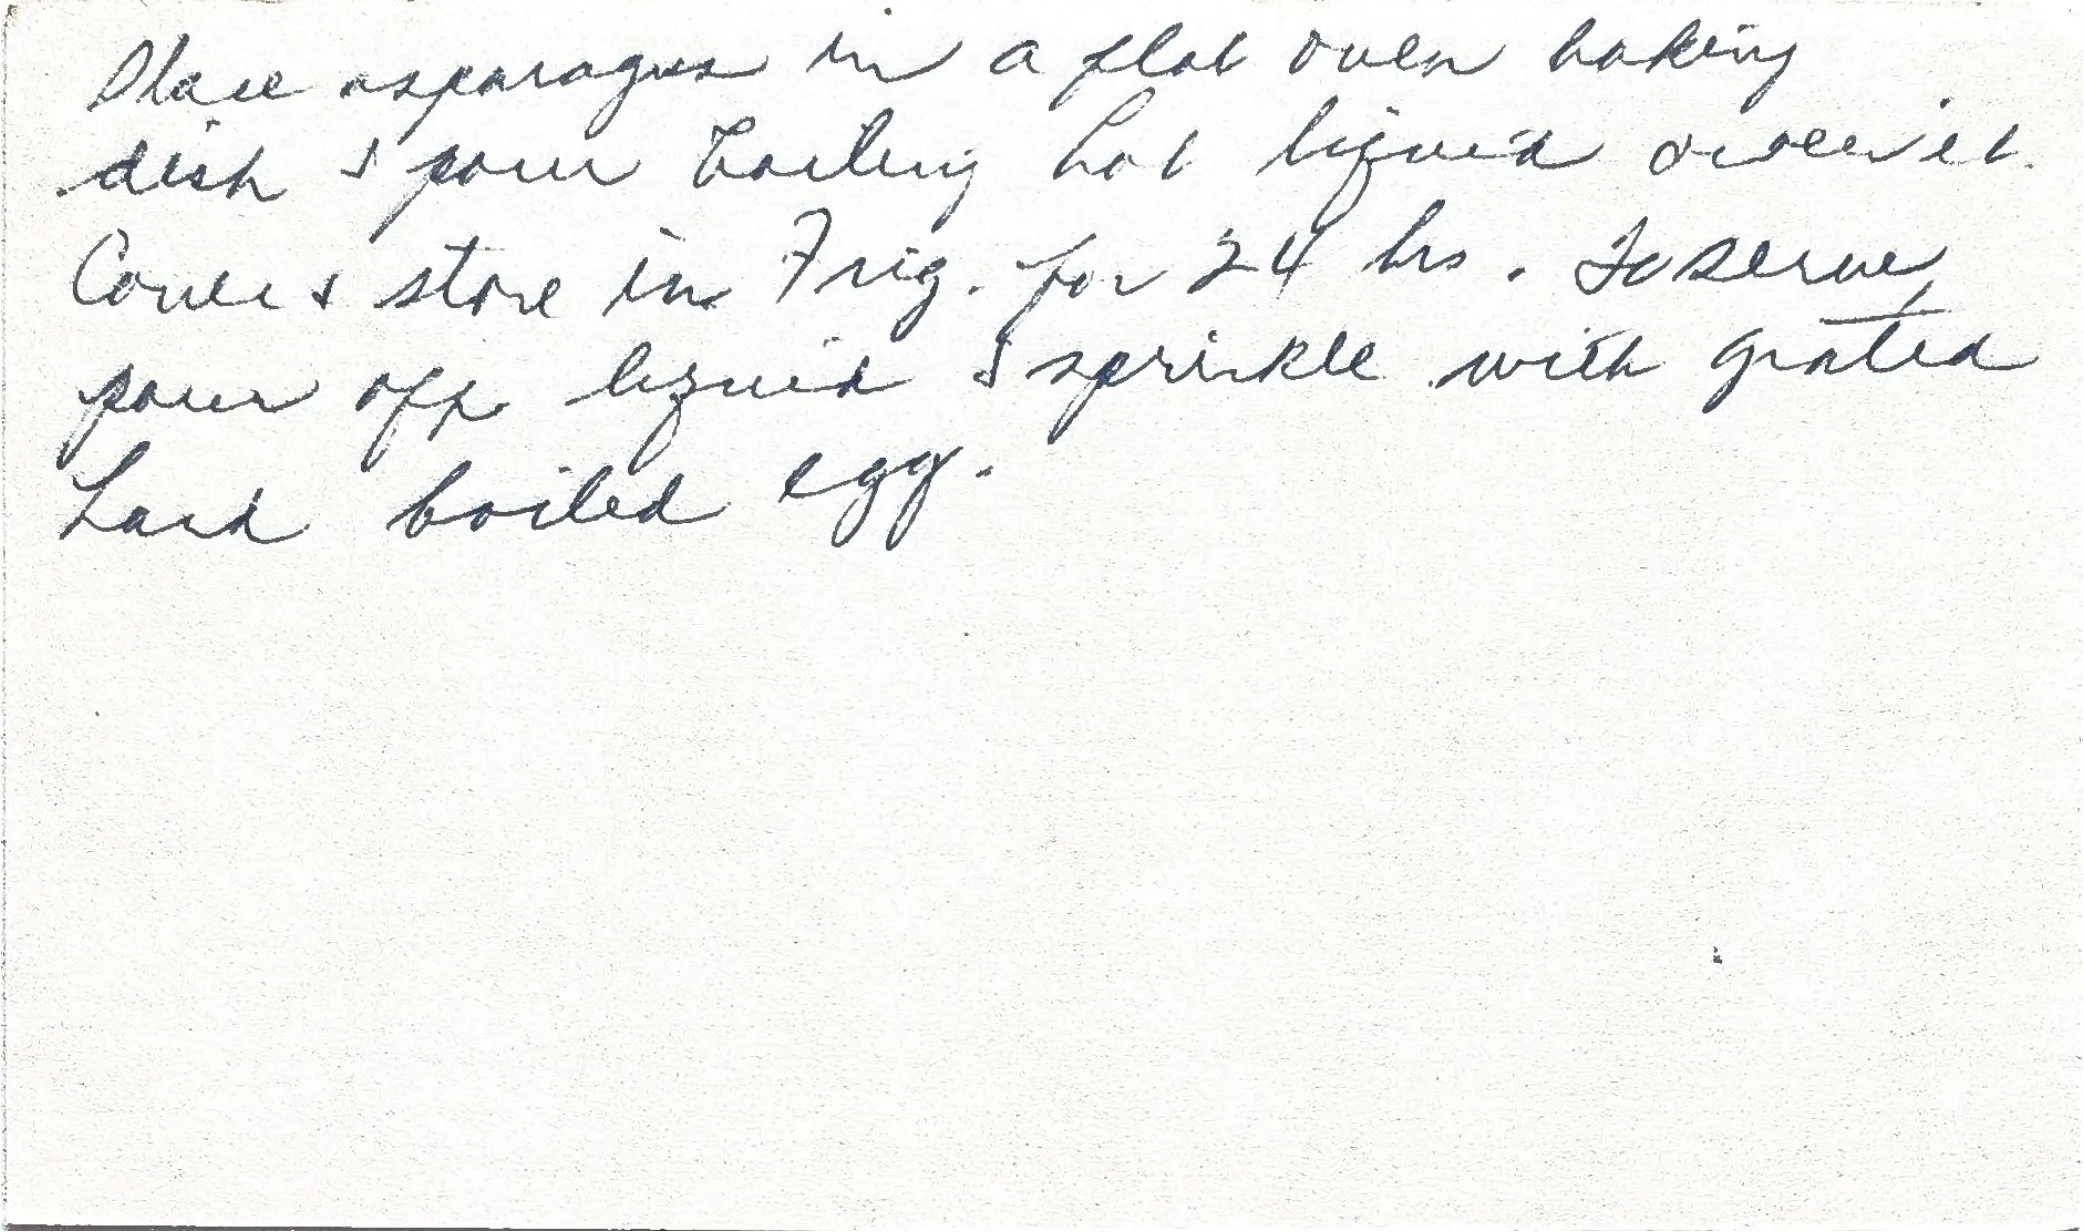 Place asparagus in a flat oven baking
dish & pour boiling hot liquid over it.
Cover & store in Frig. for 24 hrs. To serve,
pour off liquid & sprinkle with grated
hard boiled egg.